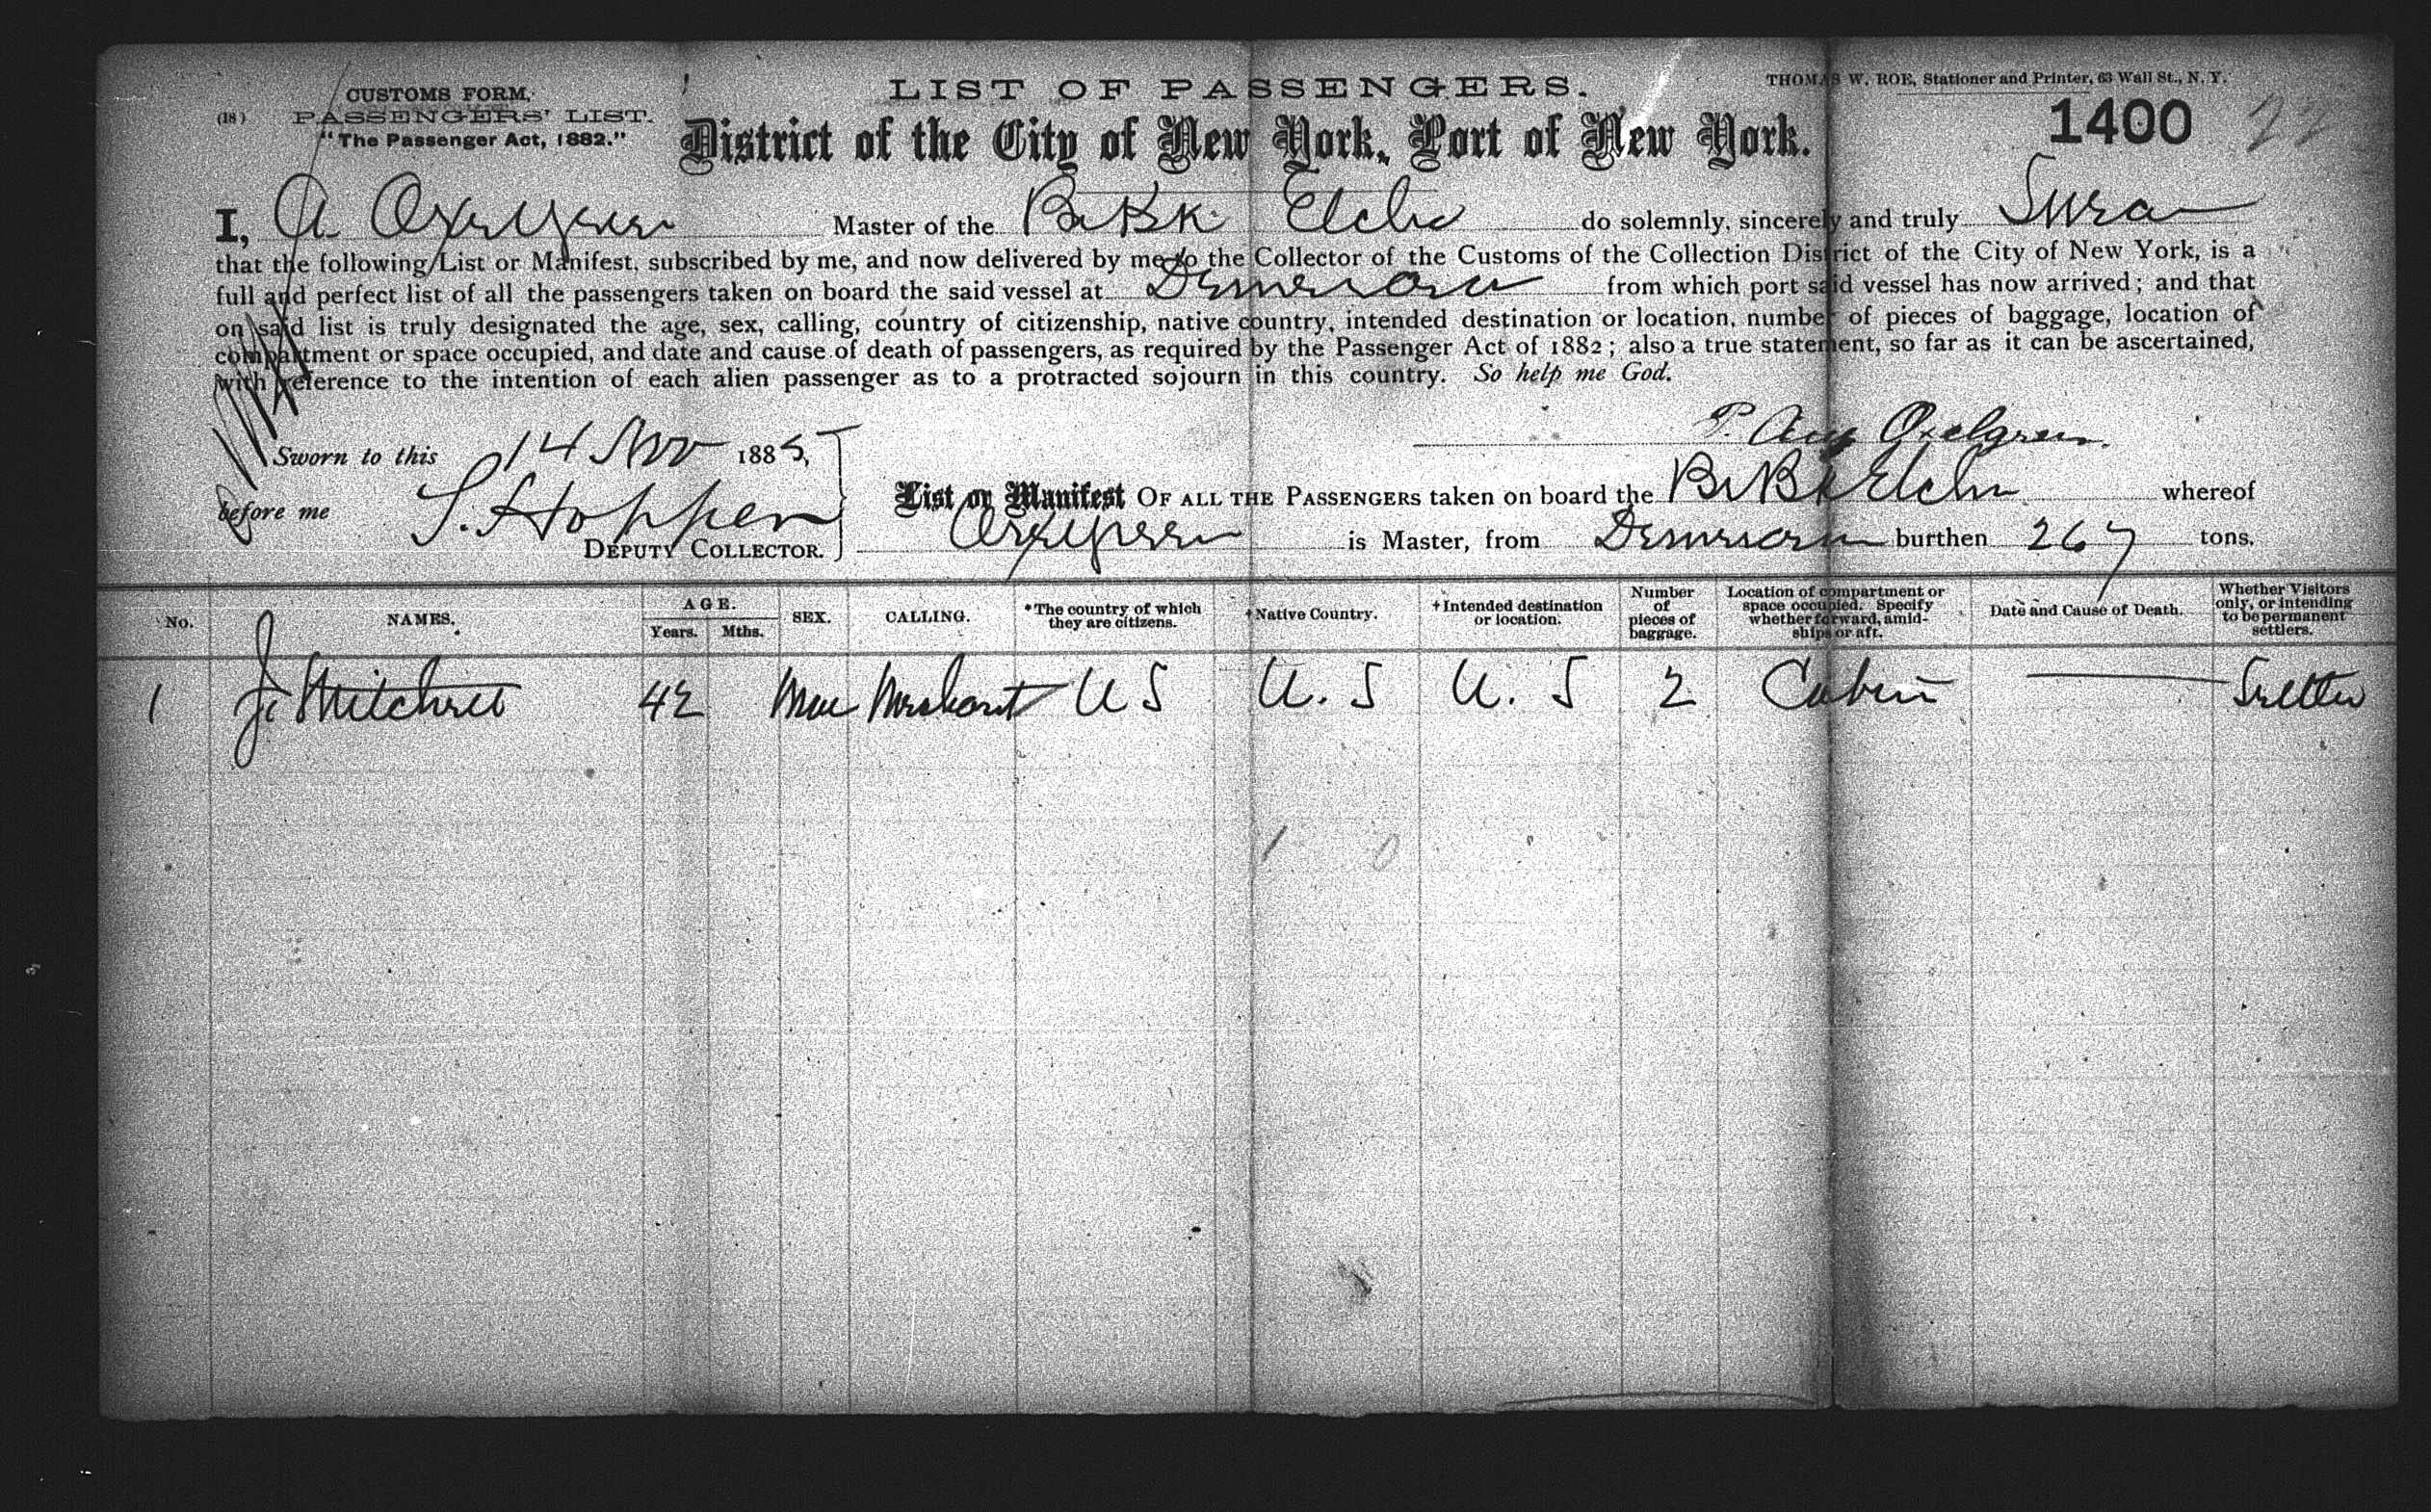 CUSTOMS FORM,
(18) PASSENGERS' LIST.
"The Passenger Act, 1882."
LIST OF PASSENGERS.
THOMAS W. ROE, Stationer and Printer, 63 Wall St., N. Y.
District of the City of New York, Port of New York.
1400 22
I, A. Master of the Br Bk Elcho do solemnly, sincerely and truly Swear
that the following List or Manifest, subscribed by me, and now delivered by me to the Collector of the Customs of the Collection District of the City of New York, is a
full and perfect list of all the passengers taken on board the said vessel at Demerara from which port said vessel has now arrived; and that
on said list is truly designated the age, sex, calling, country of citizenship, native country, intended destination or location, number of pieces of baggage, location of
compartment or space occupied, and date and cause of death of passengers, as required by the Passenger Act of 1882; also a true statement, so far as it can be ascertained,
with reference to the intention of each alien passenger as to a protracted sojourn in this country. So help me God.
P. Aug Oxelgren.
Sworn to this 14 Nov 1885,
before me S. Hoppen
DEPUTY COLLECTOR.
List or Manifest OF ALL THE PASSENGERS taken on board the Br Bk Elcho whereof
is Master, from Demerara burthen 267 tons.
No. NAMES. AGE. Years. Mths. SEX. CALLING. *The country of which they are citizens. †Native Country. †Intended destination or location. Number of pieces of baggage. Location of compartment or space occupied. Specify whether forward, amidships or aft. Date and Cause of Death. Whether Visitors only, or intending to be permanent settlers.
1 J. Mitchell 42 Male Merchant US U. S U. S 2 Cabin Settler
1 0